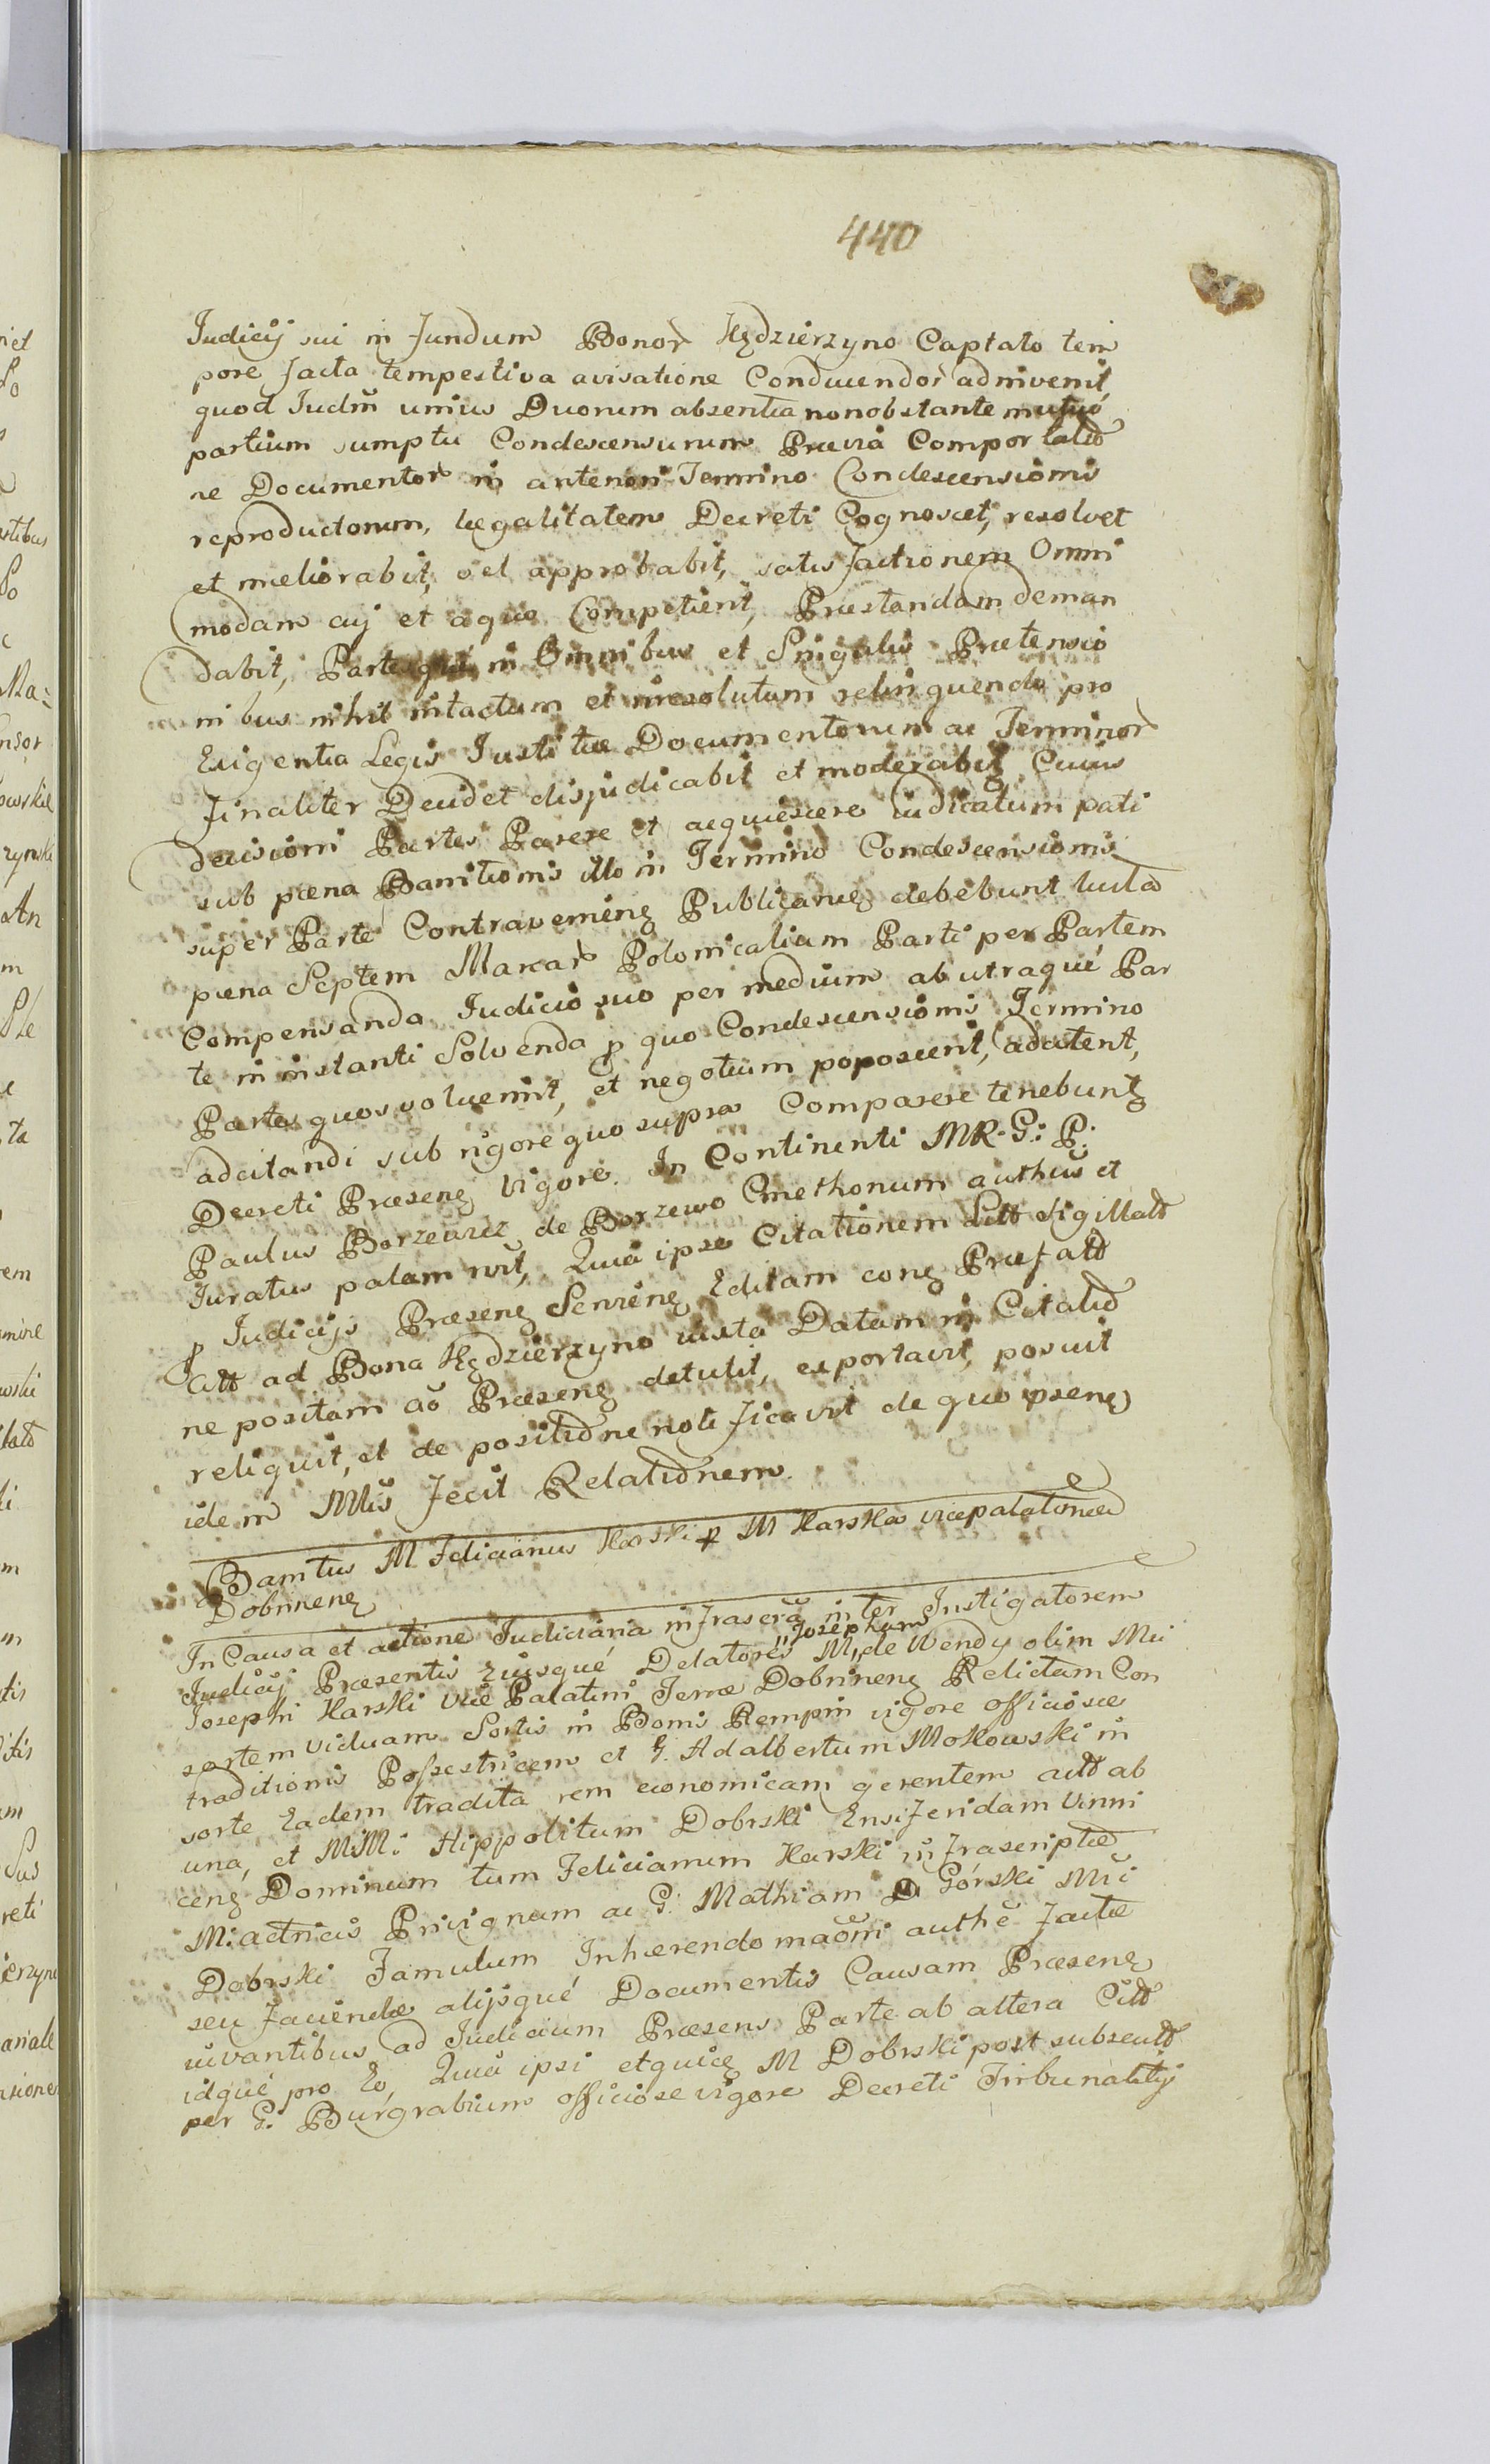 440
Judicij sui in fundum Bonor Kędzierzyno Captato tem
pore facta tempestiva avisatione Conducendor adinvenit
quod Judm unius Duorum absentia nonobstante mutuo
partium sumptu Condescensurum Prævia Comportatio
ne Documentor in anteriori Termino Condescensionis
reproductorum, legalitatem Decreti Cognoscet, resolvet
et meliorabit, vel approbabit, satisfactionem Omni
modam cuj et a quo Competient, Præstandam deman
dabit, Partesque in Omnibus et Singulis Prætensio
nibus nihil intactum et irresolutum relinquendo pro
Exigentia Legis Justitiæ Documentorum ac Terminor
Finaliter Decidet disjudicabit et moderabit Cuius
decisioni Partes Parere et acquiescere iudicatum pati
sub pœna Bannitionis illo in Termino Condescensionis
super Parte Contravenien Publicanden debebunt luita
pœna Septem Marcar Polonicalium Parti per Partem
Compensanda Judicio suo per medium ab utraqué Par
te in instanti Solvenda p quo Condescensionis Termino
Partes quos voluerint, et negotium poposcerit, adcitent,
adcitandi sub rigore quo supra Comparere tenebunt
Decreti Præsen Vigore. In Continenti MR. G: P:
Paulus Borzewicz de Borzewo Cmethonum authus et
Juratus palam rvit, Quia ipse Citationem Litt Sigillatt
p Judicijs Præsen Servien Editam con Præfatt
Citt ad Bona Kędzierzyno iuxta Datam in Citatio
ne positam ad Præsen detulit, exportavit, posuit
reliquit, et de positione notificavit de quo præsen
idem Mlis fecit Relationem.
Banitus M Felicianus Karski p M Karska vicepalatinæ
Dobrinen
In Causa et actione Judiciaria infrascra inter Instigatorem
Judicij Præsentis Eiusqué Delatores M, Josephum de Wendy olim Mci
Josephi Karski Vice Palatini Terræ Dobrinen Relictam Con
sortem viduam Sortis in Bonis Rempin vigore officiosæ
traditionis Possestricem et G. Adalbertum Mokowski in
sorte Eadem tradita rem economicam gerentem actt ab
una, et MM: Hippolitum Dobrski Ensiferidam Vinni
cen Dominum tum Felicianum Karski infrascriptæ
M: actricis Privignum ac G: Mathiam Górski Mci
Dobrski Famulum Inhærendo maoni authe factæ
seu faciendæ alijsqué Documentis Causam Præsen
iuvantibus ad Judicium Præsens Parte ab altera Citt
idqué pro Eo, Quia ipsi M Dobrski post subsecutt
per G. Burgrabium officiose vigore Decreti Tribunalitij